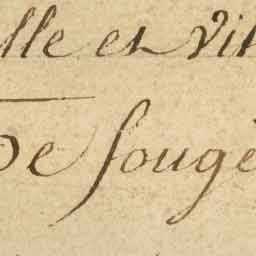 lle et Vil
De fougè